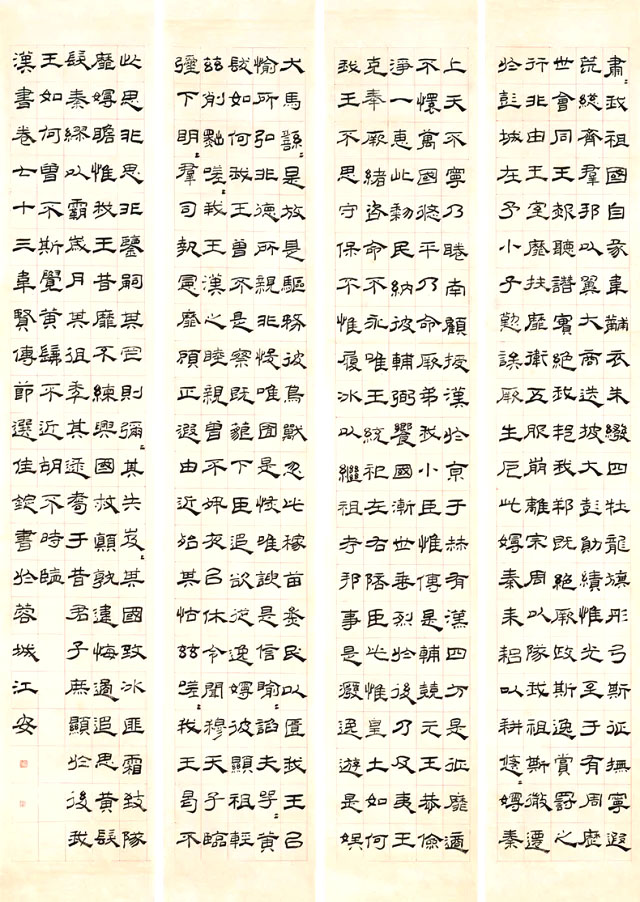 肅=我祖國自豕韋黼衣朱黻四牡龍旂彤弓斯征撫寧遐
荒總齊羣邦以翼大商迭披大彭勳績惟光至于有周歷
世會同王赧聽譖實絕我邦我邦既絕厥政斯逸賞罰之
行非由王室靡扶靡衛五服崩離宗周以隊我祖斯微遷
於彭城在予小子勤誒厥生阨此嫚秦耒耜以耕悠=嫚秦
上天不寧乃眷南顧授漢於京于赫有漢四方是征靡適
不懷萬國逌平乃命厥弟我小臣惟傅是輔兢元王恭儉
淨一惠此黎民納彼輔弼饗國漸世垂烈於後乃及夷王
克奉厥緒咨命不永唯王統祀左右陪臣此惟皇土如何
我王不思守保不惟履冰以繼祖考邦事是廢逸遊是娛
犬馬繇=是放是驅務彼鳥獸忽此稼苗烝民以匱我王以
愉所弘非德所親非俊唯囿是恢唯諛是信睮=諂夫咢=黃
髮如何我王曾不是察既藐下臣追欲從逸嫚彼顯祖輕
茲削黜嗟=我王漢之睦親曾不夙夜以休令聞穆天子臨
下明=羣司執憲靡顧正遐由近殆其怙茲嗟=我王曷不
此思非思非鑒嗣其罔則彌=其失岌=其國致冰匪霜致隊
靡嫚瞻惟我王昔靡不練興國救顛孰違悔過追思黃髮
髮秦繆以霸歲月其徂年其逮耇于昔君子庶顯於後我
王如何曾不斯覽黃髮不近胡不時臨
漢書卷七十三韋賢傳節選佳錠書於蓉城江安